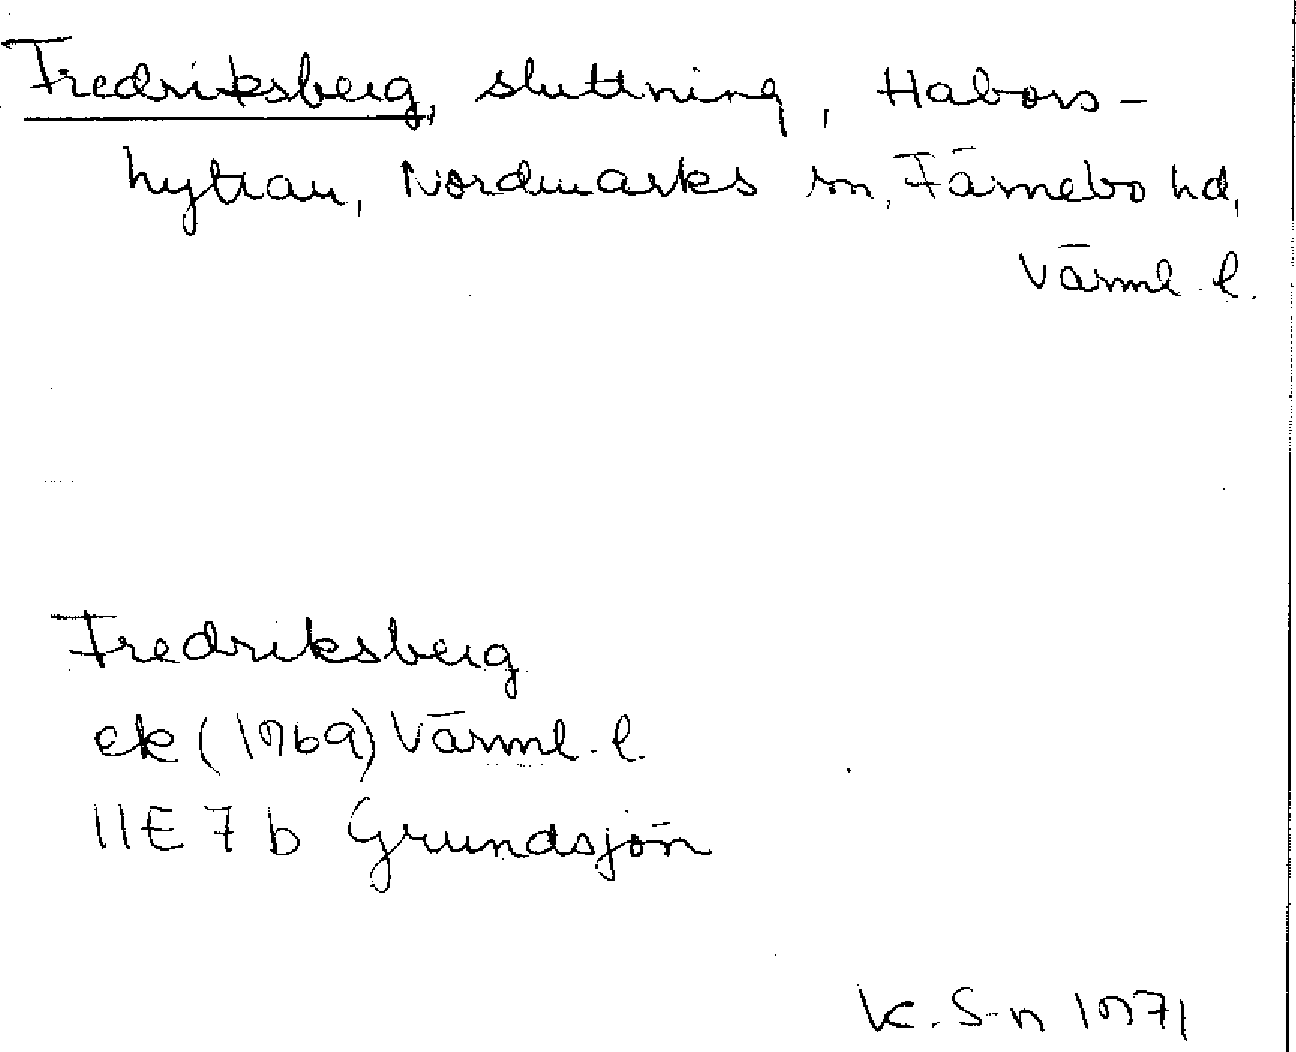 Fredriksberg, sluttning, Habors-
hyttan, Nordmarks sn, Färnebo hd,
Värml. l.
Fredriksberg
ek (1969) Värml. l.
11E 7 b Grundsjön
K. S-n 1971